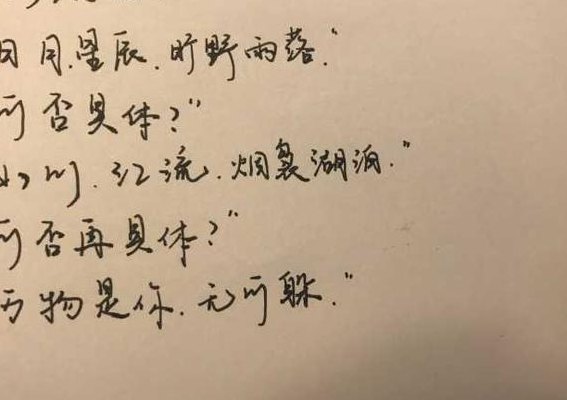 日月.星辰.旷野.雨落."
可否具体?"
山川.江流.烟袅湖泊."
可否再具体?"
万物是你.无可躲."